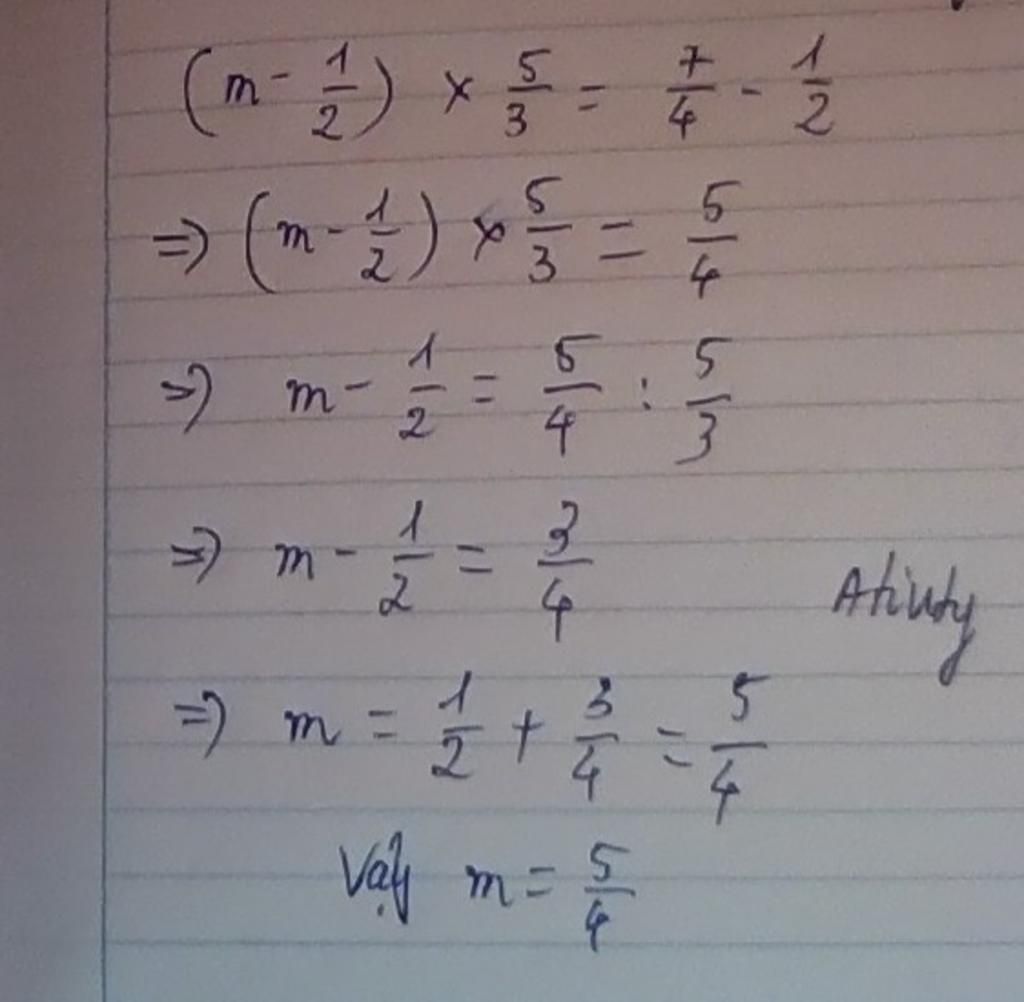 (m - 1/2) × 5/3 = 7/4 - 1/2
=> (m - 1/2) × 5/3 = 5/4
=> m - 1/2 = 5/4 : 5/3
=> m - 1/2 = 3/4
=> m = 1/2 + 3/4 = 5/4
Vậy m = 5/4